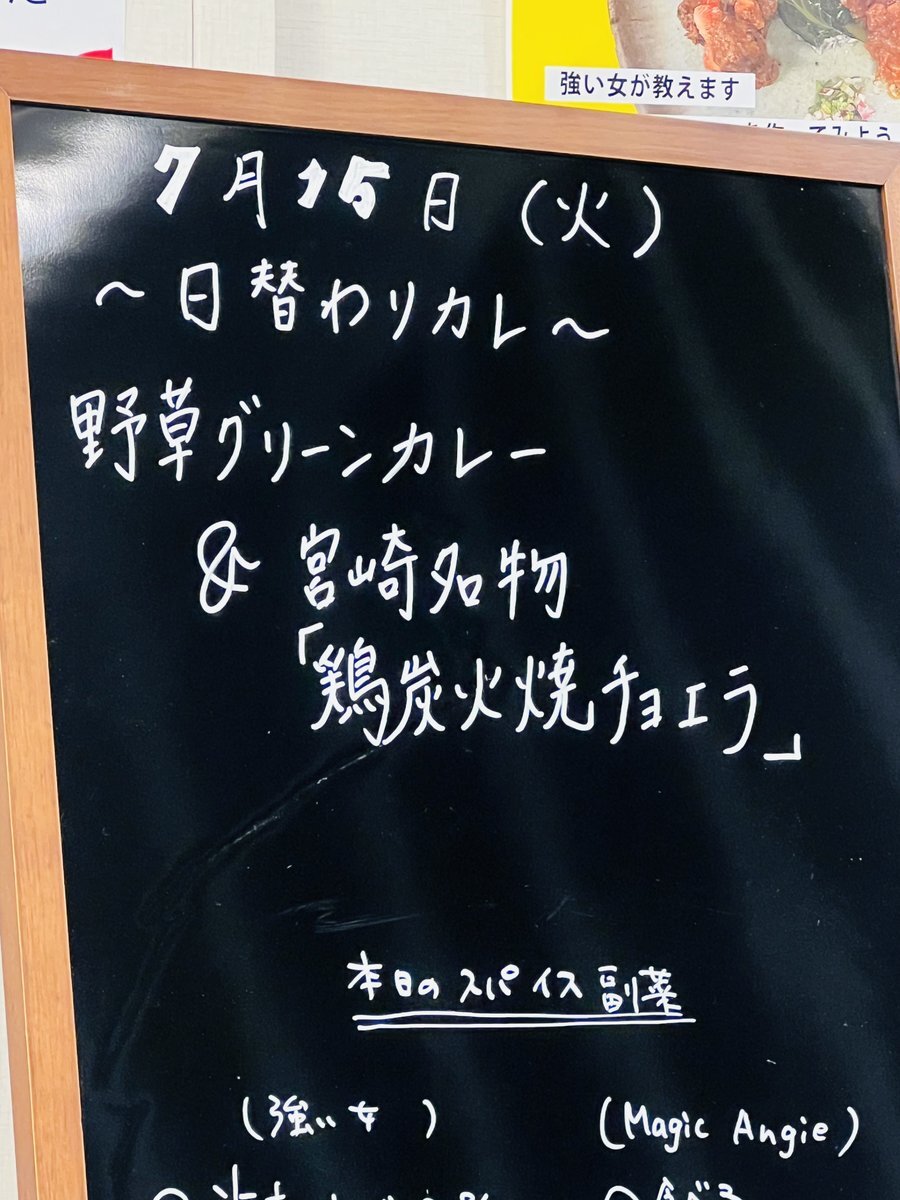 強い女が教えます
7月15日(火)
～日替わりカレ～
野草グリーンカレー
& 宮崎名物
「鶏炭火焼チョエラ」
本日のスパイス副菜
(強い女 )
(Magic Angie)